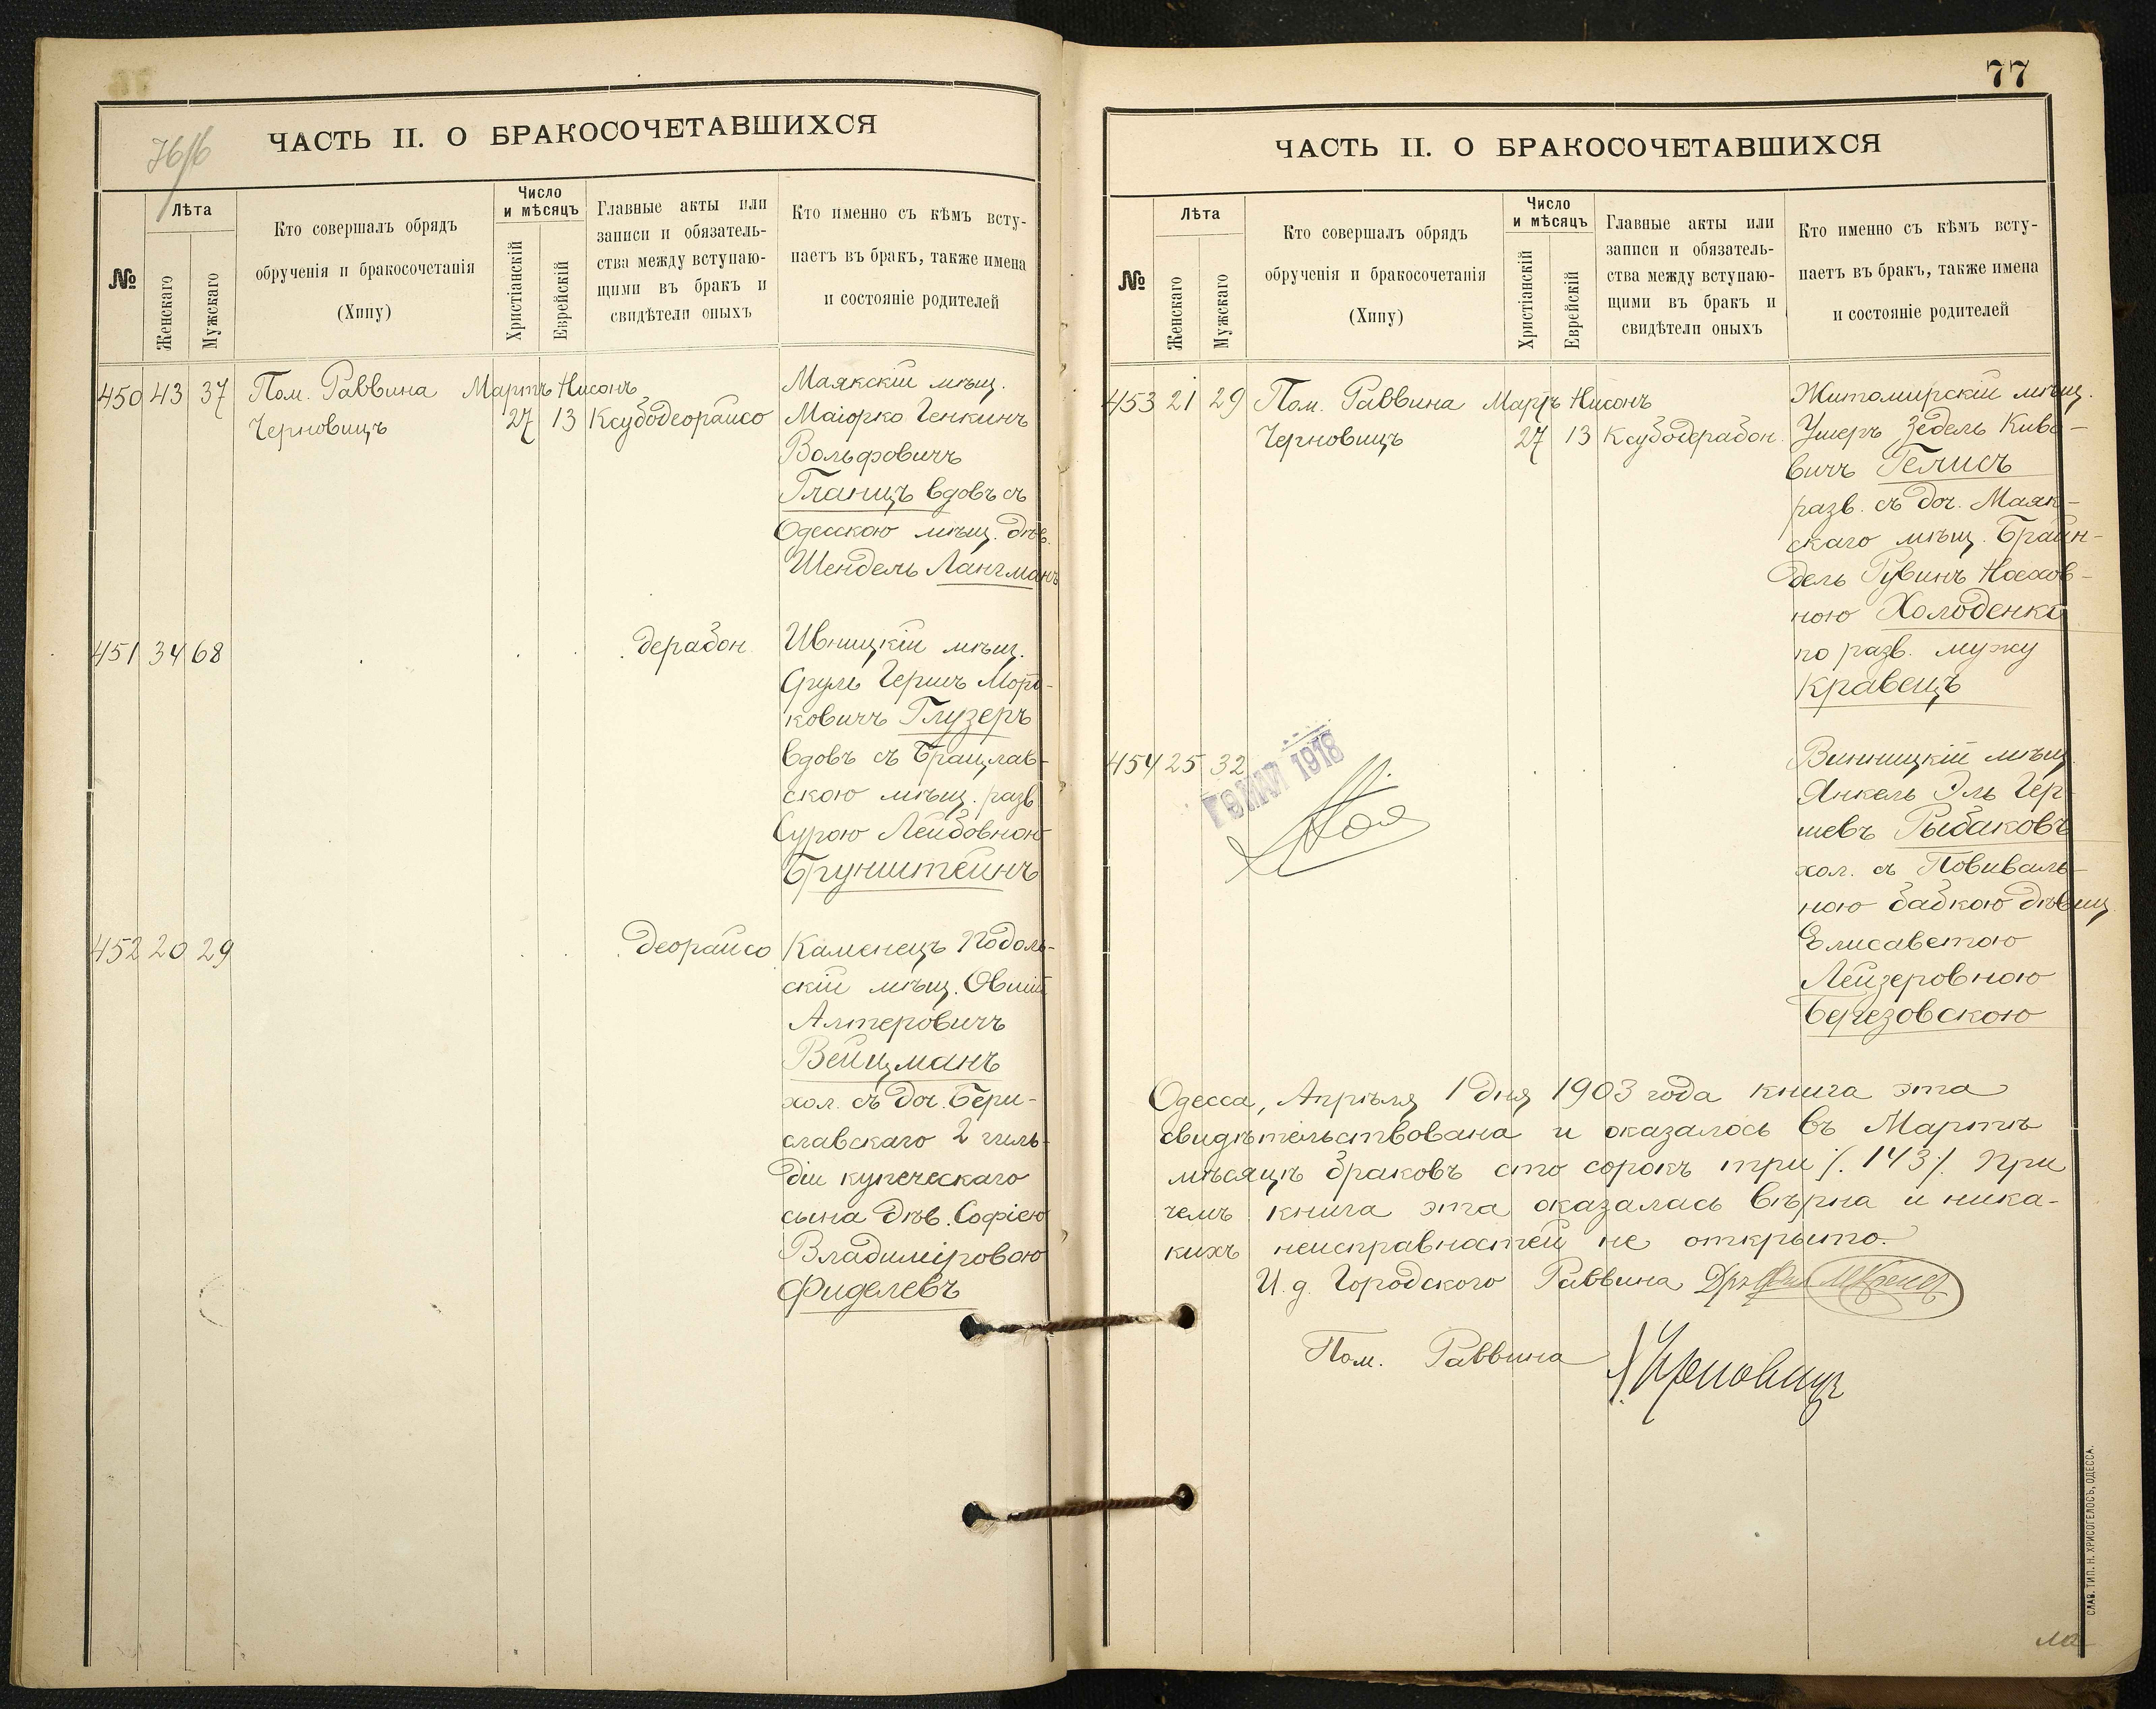 76/б
ЧАСТЬ II. О БРАКОСОЧЕТАВШИХСЯ
№
Лѣта
Женскаго
Мужскаго
Кто совершалъ обрядъ
обрученія и бракосочетанія
(Хипу)
Число
и мѣсяцъ
Христіанскій
Еврейскій
Главные акты или
записи и обязатель-
ства между вступаю-
щими въ бракъ и
свидѣтели оныхъ
Кто именно съ кѣмъ всту-
паетъ въ бракъ, также имена
и состояніе родителей
450 43 37 Пом. Раввина Мартъ Нисонъ
Черновицъ 27 13 Ксубодеорайсо
Маякскій мѣщ.
Маіорко Генкинъ
Вольфовичъ
Гланцъ вдовъ съ
Одесскою мѣщ. дѣв.
Шендель Лангманъ
451 34 68 дерабон
Ивницкій мѣщ.
Сруль Гершъ Морд-
ковичъ Глузеръ
вдовъ съ Брацлав-
скою мѣщ. разв
Сурою Лейбовною
Брунштейнъ
452 20 29 деорайсо
Каменецъ Подоль-
скій мѣщ. Овшій
Алтеровичъ
Вейцманъ
хол. съ доч. Бери-
славскаго 2 гиль-
діи купеческаго
сына дѣв. Софіею
Владиміровою
Фиделевъ
77
ЧАСТЬ II. О БРАКОСОЧЕТАВШИХСЯ
№
Лѣта
Женскаго
Мужскаго
Кто совершалъ обрядъ
обрученія и бракосочетанія
(Хипу)
Число
и мѣсяцъ
Христіанскій
Еврейскій
Главные акты или
записи и обязатель-
ства между вступаю-
щими въ бракъ и
свидѣтели оныхъ
Кто именно съ кѣмъ всту-
паетъ въ бракъ, также имена
и состояніе родителей
453 21 29 Пом. Раввина Мартъ Нисонъ
Черновицъ 27 13 Ксубодерабон.
Житомирскій мѣщ.
Ушеръ Зедель Киво-
вичъ Гелисъ
разв. съ доч. Маяк-
скаго мѣщ. Брайн-
дель Рувинъ Носхов-
ною Холоденко
по разв. мужу
Кравецъ
454 25 32
МАЙ 1918
Винницкій мѣщ.
Янкель Эль Гер-
шевъ Рыбаковъ
хол. съ Повиваль-
ною бабкою дѣвиц.
Елисаветою
Лейзеровною
Березовскою
Одесса, Апрѣля 1 дня 1903 года книга эта
свидѣтельствована и оказалось въ Мартѣ
мѣсяцѣ браковъ сто сорокъ три /. 143 /. При
чемъ книга эта оказалась вѣрна и ника-
кихъ неисправностей не открыто.
И. д. Городского Раввина Дръ
Пом. Раввина Черновицъ
СЛАВ. ТИП. Н. ХРИСОГЕЛОСЪ, ОДЕССА.